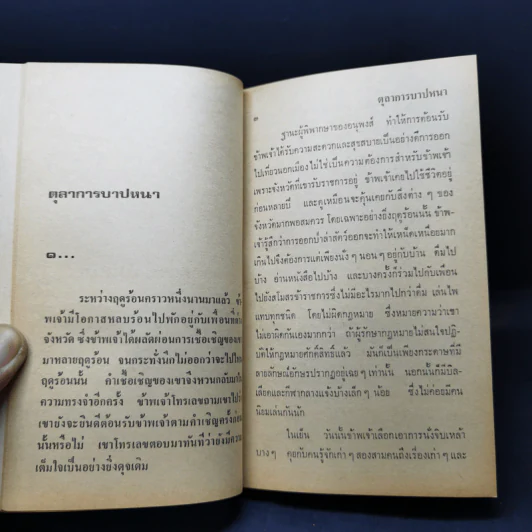 ตุลาการบาปหนา
๑...
ระหว่างฤดูร้อนคราวหนึ่งนานมาแล้ว
พเจ้ามีโอกาสหลบร้อนไปพักอยู่กับเพื่อนที่
จังหวัด ซึ่งข้าพเจ้าได้ผลัดผ่อนการเชื้อเชิญของ
มาหลายฤดูร้อน จนกระทั่งนึกไม่ออกว่าจะไปไ
ฤดูร้อนนั้น คำเชื้อเชิญของเขาจึงหวนกลับมา
ความทรงจำอีกครั้ง ข้าพเจ้าโทรเลขถามเขาไป
เขายังจะยินดีต้อนรับข้าพเจ้าตามคำเชิญครั้งก่อน
นั้นหรือไม่ เขาโทรเลขตอบมาทันทีว่ายังมีความ
เต็มใจเป็นอย่างยิ่งดุจเดิม
ตุลาการบาปหนา
๓
ฐานะผู้พิพากษาของอนุพงส์ ทำให้การต้อนรับ
ข้าพเจ้าได้รับความสะดวกและสุขสบายเป็นอย่างดีการออก
ไปเที่ยวนอกเมืองไม่ใช่เป็นความต้องการสำหรับข้าพเจ้า
เพราะจังหวัดที่เขารับราชการอยู่ ข้าพเจ้าเคยไปใช้ชีวิตอยู่
ก่อนหลายปี และดูเหมือนจะคุ้นเคยกับสิ่งต่าง ๆ ของ
จังหวัดมากพอสมควร โดยเฉพาะอย่างยิ่งฤดูร้อนนั้น ข้าพ-
เจ้ารู้สึกว่าการออกป่าล่าสัตว์ออกจะทำให้เหน็ดเหนื่อยมาก
เกินไปจึงต้องการแต่เพียงนั่ง ๆ นอน ๆ อยู่กับบ้าน ดื่มไป
บ้าง อ่านหนังสือไปบ้าง และบางครั้งก็ร่วมไปกับเพื่อน
ไปยังสโมสรข้าราชการ ซึ่งไม่มีอะไรมากไปกว่าดื่ม เล่นไพ่
แทบทุกชนิด โดยไม่ผิดกฎหมาย ซึ่งหมายความว่าเขา
ไม่จับกันเองมากกว่า ถ้าผู้รักษากฎหมายไม่สนใจปฏิ-
บัติให้กฎหมายศักดิ์สิทธิ์แล้ว มันก็เป็นเพียงกระดาษที่มี
ลายลักษณ์อักษรปรากฏอยู่เฉย ๆ เท่านั้น นอกนั้นก็มีบิล-
เลียดและกีฬากลางแจ้งบ้างเล็ก ๆ น้อย ซึ่งไม่ค่อยมีคน
นิยมเล่นกันนัก
ในเย็น วันนั้นข้าพเจ้าเลือกเอาการนั่งจิบเหล้า
บาง ๆ คุยกับคนรู้จักเก่า ๆ สองสามคนถึงเรื่องเก่า ๆ และ